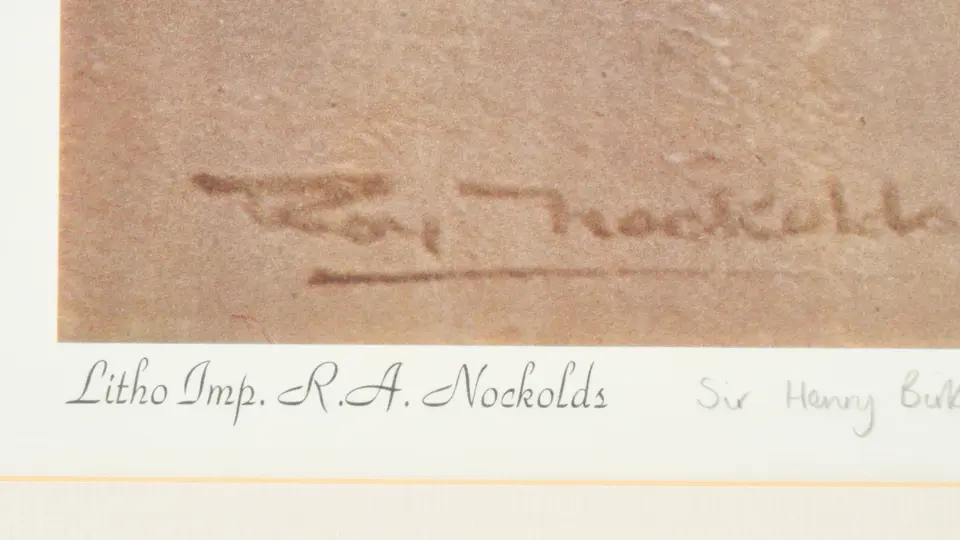 Roy Nockolds
Litho Imp. R.A. Nockolds
Sir Henry